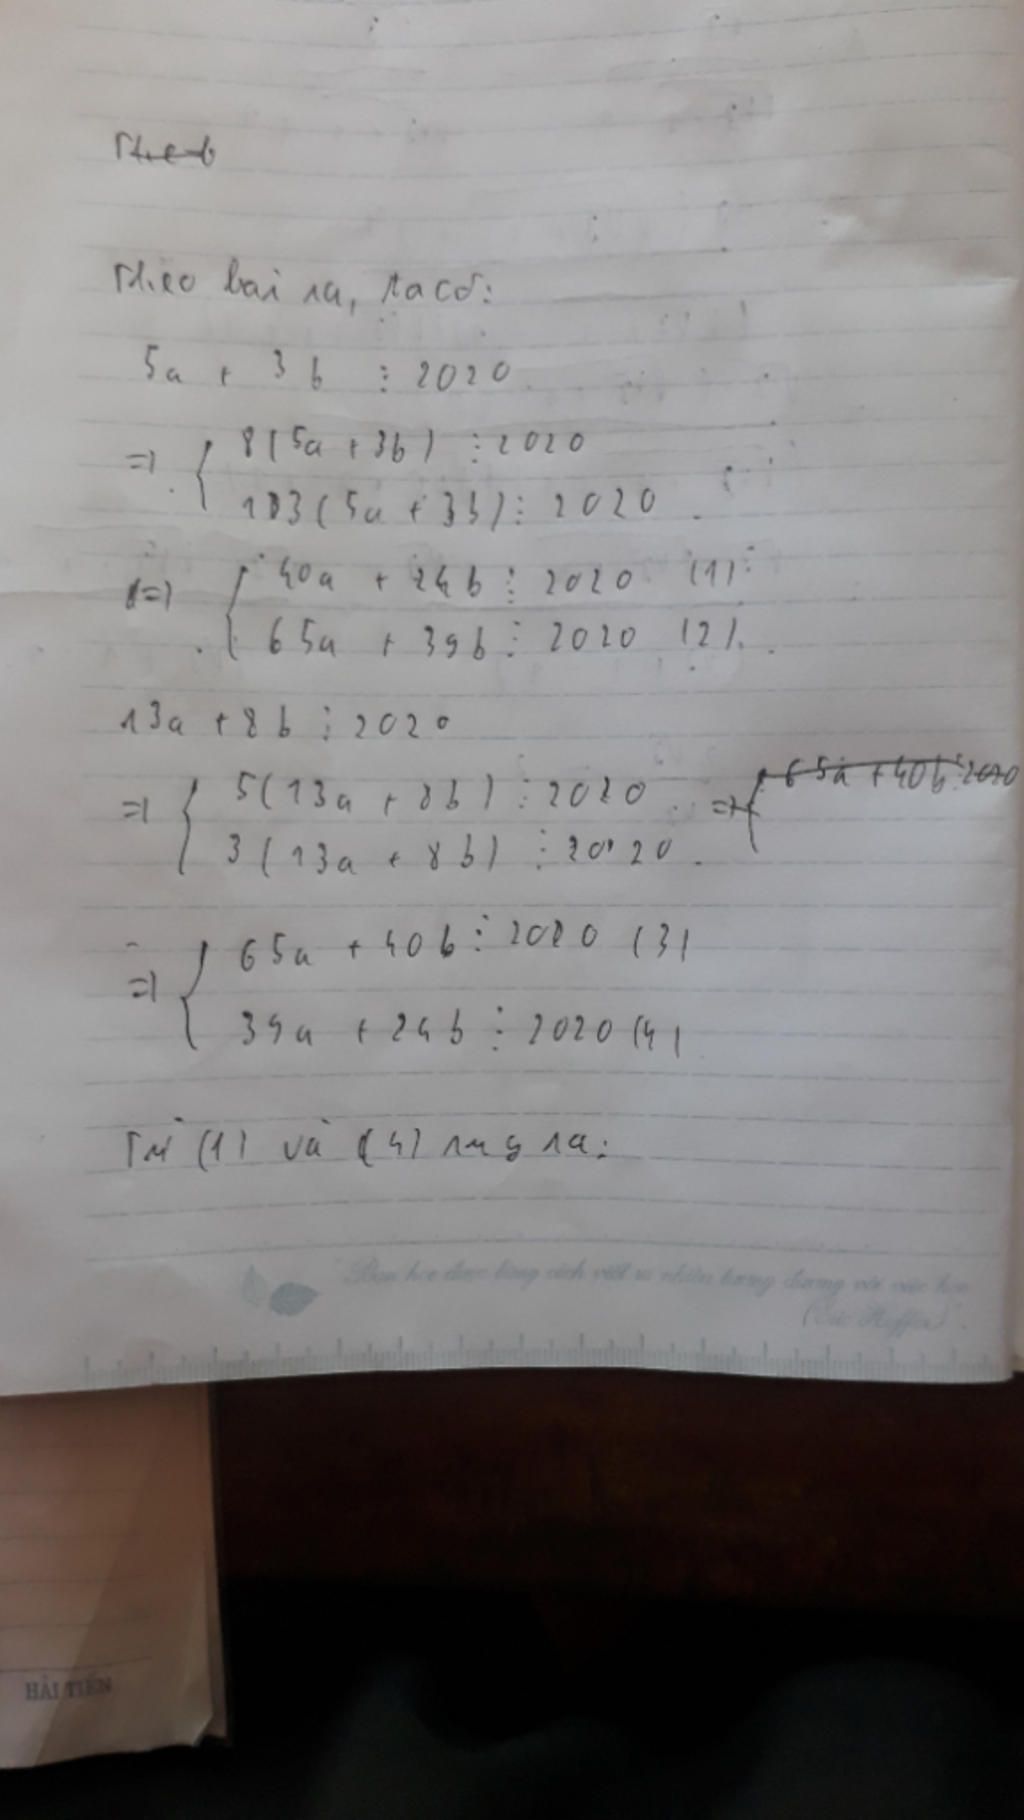 Theo bài ra, ta có:
5a + 3b ⋮ 2020
=> { 8(5a + 3b) ⋮ 2020
13(5a + 3b) ⋮ 2020
=> { 40a + 24b ⋮ 2020 (1)
65a + 39b ⋮ 2020 (2)
13a + 8b ⋮ 2020
=> { 5(13a + 8b) ⋮ 2020 => { 65a + 40b ⋮ 2020
3(13a + 8b) ⋮ 2020
=> { 65a + 40b ⋮ 2020 (3)
39a + 24b ⋮ 2020 (4)
Từ (1) và (4) suy ra:
Bạn học được bằng cách viết ra nhiều tương đương với việc học
(Eric Hoffer)
HẢI TIẾN